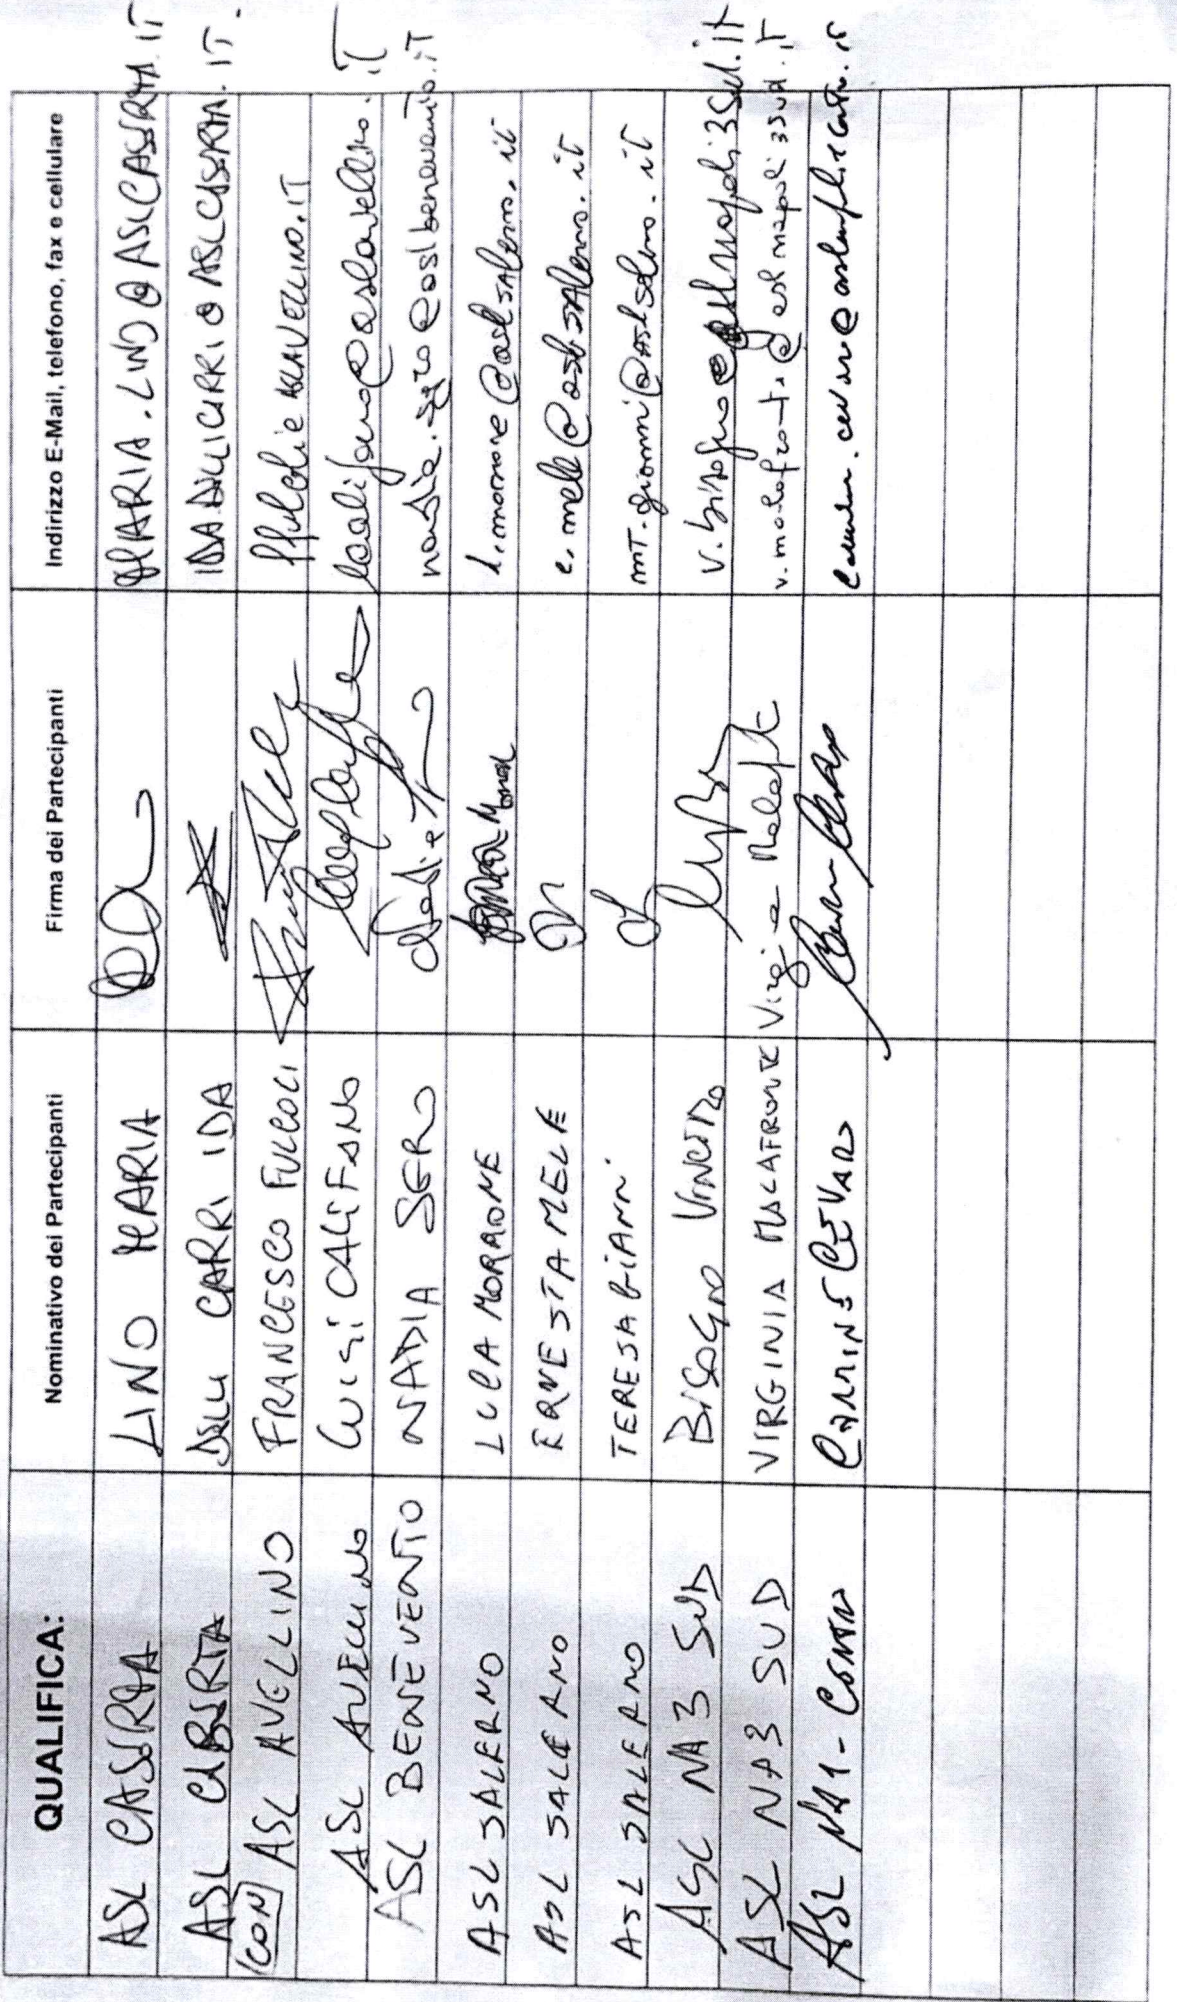 QUALIFICA: Nominativo dei Partecipanti Firma dei Partecipanti Indirizzo E-Mail, telefono, fax e cellulare
ASL CASERTA LINO MARIA MARIA.LINO@ASLCASERTA.IT
ASL CASERTA DELLI CARRI IDA IDA.DELLICARRI@ASLCASERTA.IT.
ASL AVELLINO FRANCESCO FULCOLI
ASL AVELLINO LUIGI CALIFANO lcalifano@aslavellino.IT
ASL BENEVENTO NADIA SGRO nadia.sgro@aslbenevento.it
ASL SALERNO LUCA MORRONE l.morrone@aslsalerno.it
ASL SALERNO ERNESTA MELE e.mele@aslsalerno.it
ASL SALERNO TERESA GIANNI mT.gianni@aslsalerno.it
ASL NA 3 SUD BISOGNO VINCENZO v.bisogno@aslnapoli3sud.it
ASL NA3 SUD VIRGINIA MALAFRONTE Virginia Malafronte v.malafronte@aslnapoli3sud.it
ASL NA1-CENTRO